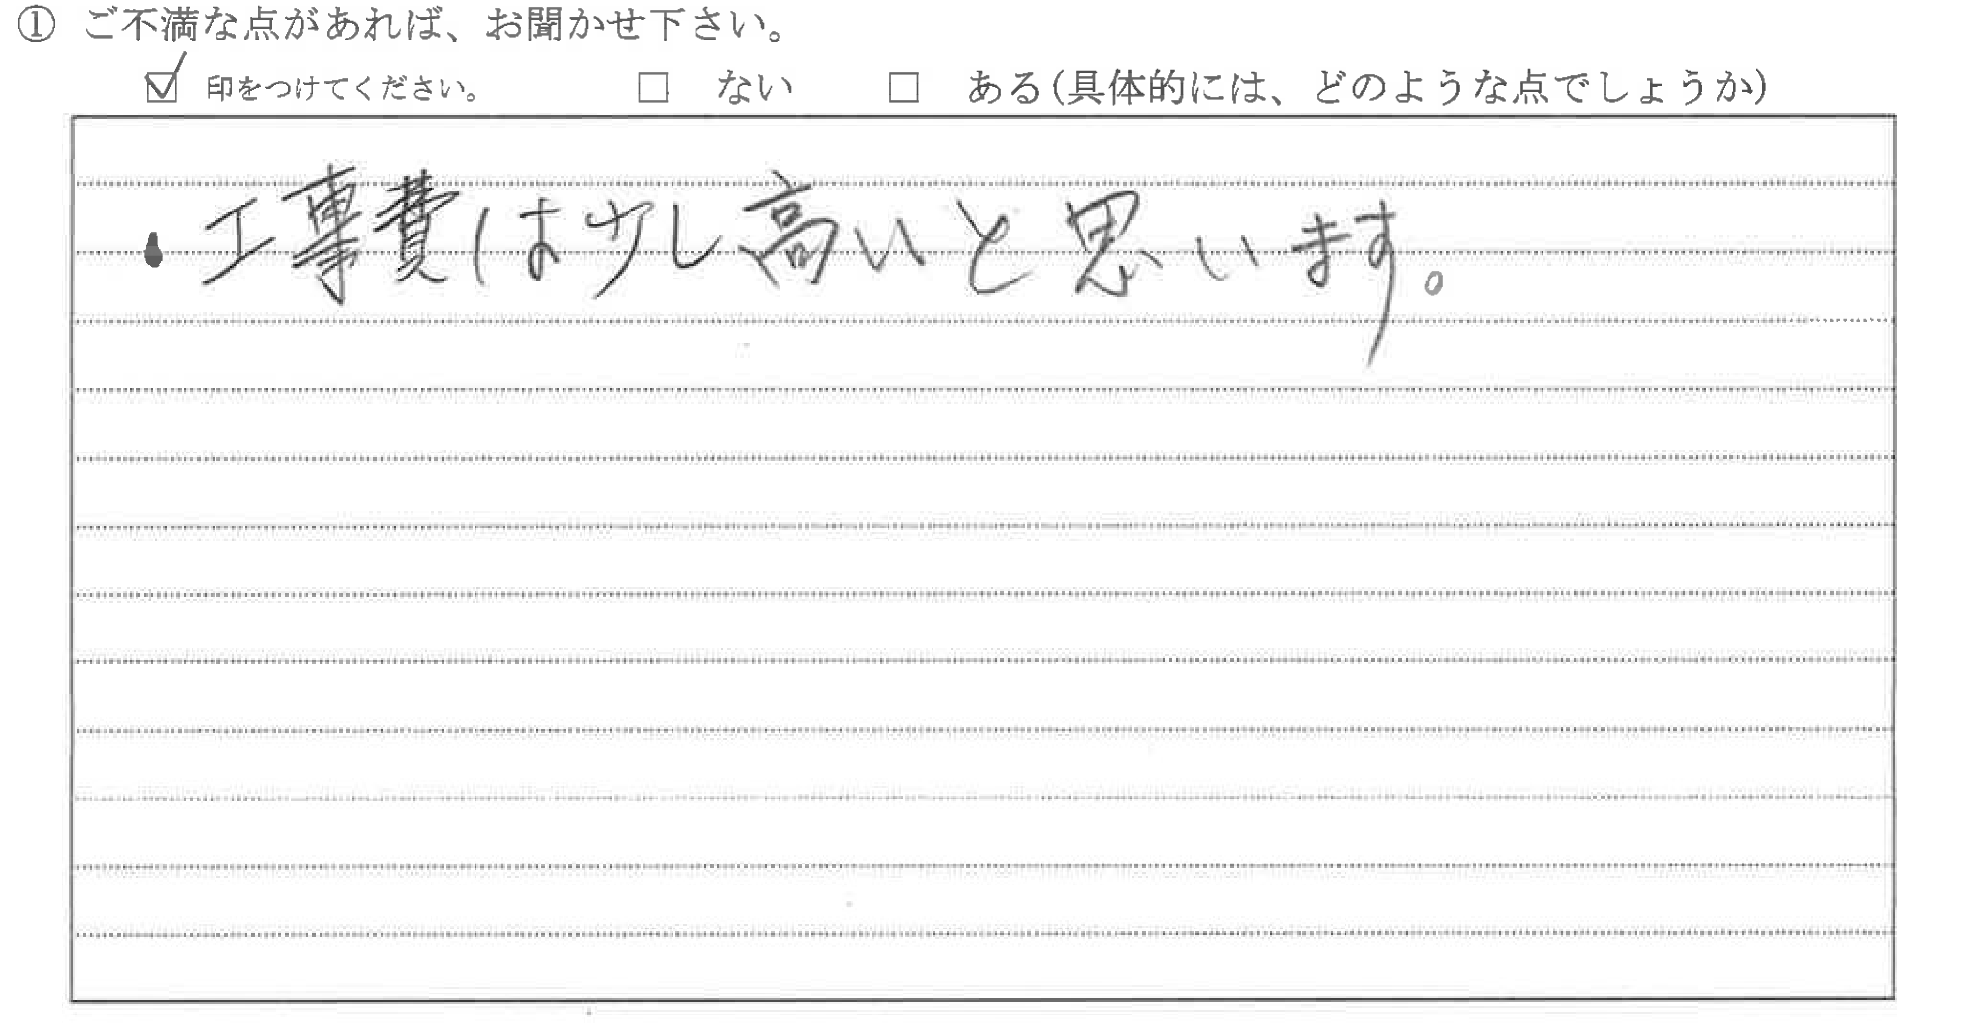 ① ご不満な点があれば、お聞かせ下さい。
☑ 印をつけてください。 □ ない □ ある(具体的には、どのような点でしょうか)
・工事費は少し高いと思います。